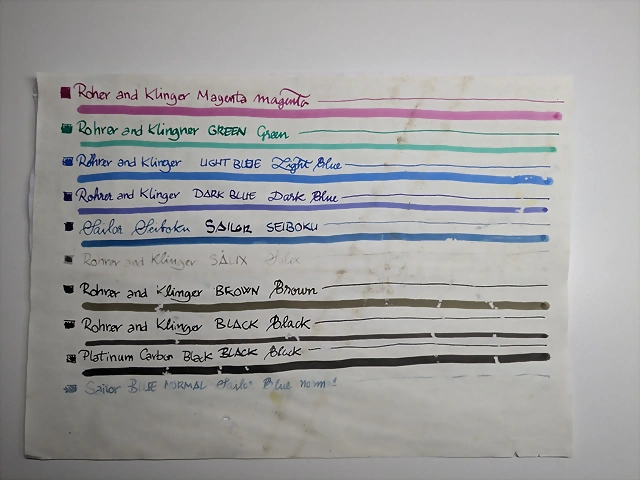 Roher and Klinger Magenta magenta
Rohrer and Klingner GREEN Green
Rohrer and Klinger LIGHT BLUE Light Blue
Rohrer and Klinger DARK BLUE Dark Blue
Sailor Seiboku SAILOR SEIBOKU
Rohrer and Klinger SALIX Salix
Rohrer and Klinger BROWN Brown
Rohrer and Klinger BLACK Black
Platinum Carbon Black BLACK Black
Sailor BLUE NORMAL Sailor Blue normal